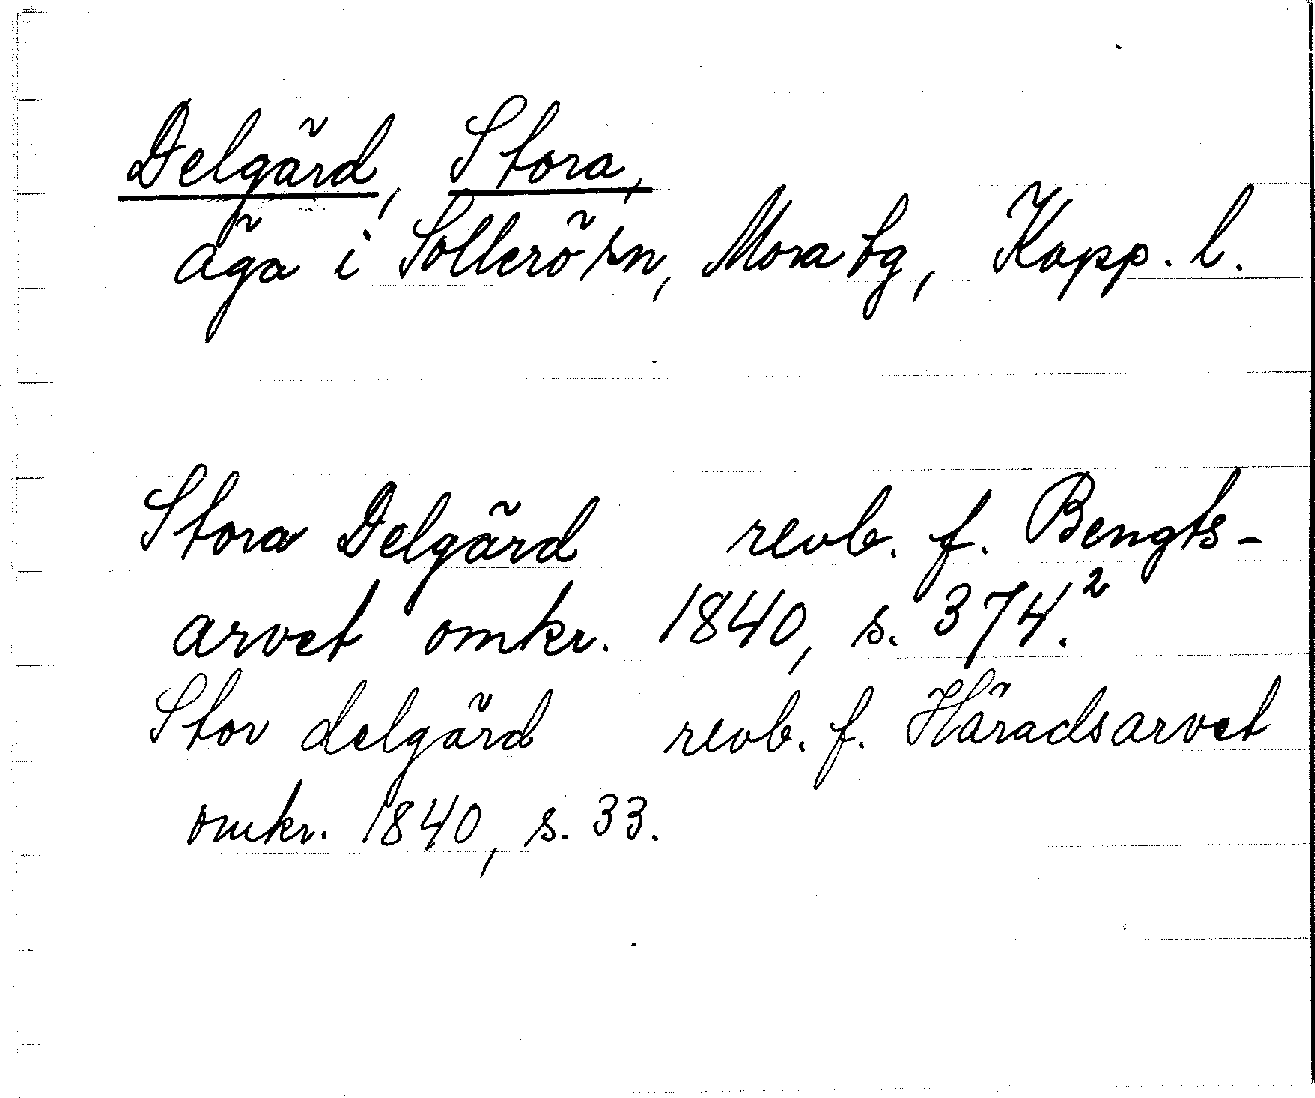 Delgärd, Stora,
äga i Sollerö sn, Mora tg, Kopp. l.
Stora Delgärd revb. f. Bengts-
arvet omkr. 1840, s. 374.²
Stor delgärd revb. f. Häradsarvet
omkr. 1840, s. 33.